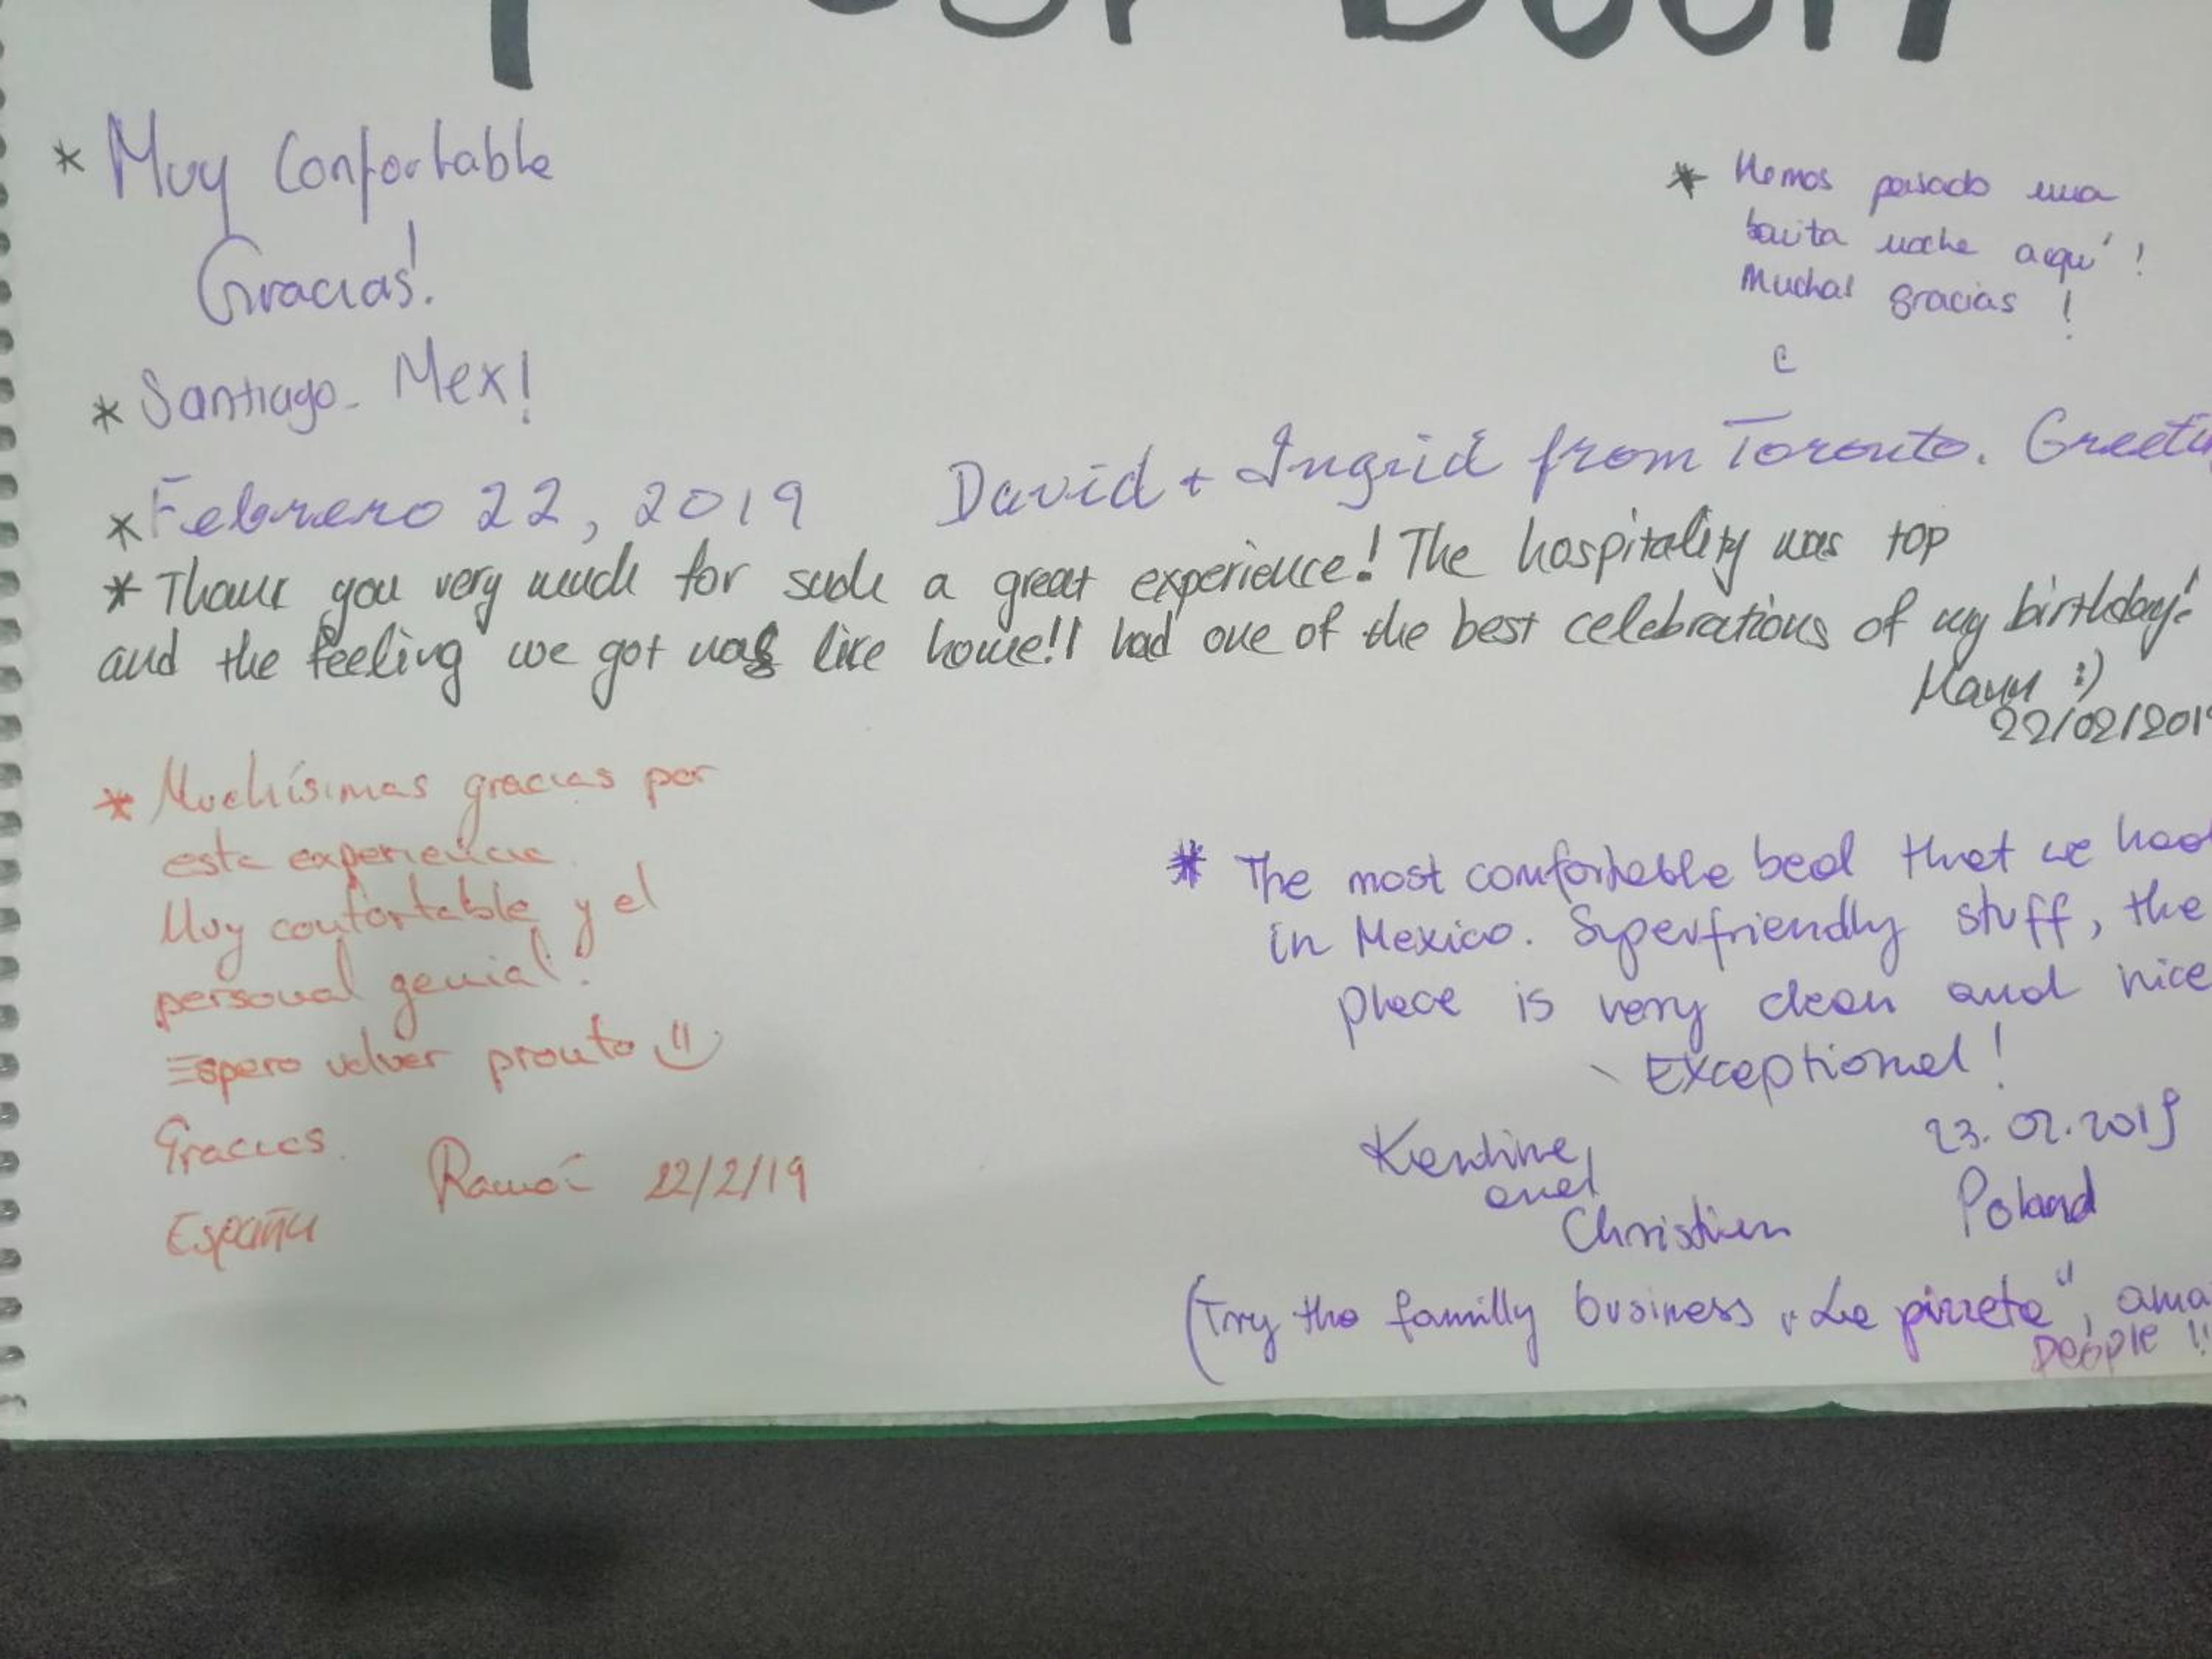 * Muy Confortable
Gracias!
* Hemos pasado una
bonita noche aquí!
Muchas gracias!
* Santiago - Mex!
* Febrero 22, 2019 David + Ingrid from Toronto.
* Thank you very much for such a great experience! The hospitality was top
and the feeling we got was like home!! I had one of the best celebrations of my birthday!
:)
22/02/2019
* Muchísimas gracias por
esta experiencia.
Muy confortable y el
personal genial!
Espero volver pronto
Gracias.
Ramón 22/2/19
España
* The most comfortable bed that we had
in Mexico. Superfriendly stuff, the
place is very clean and nice
- Exceptional!
23.02.2019
and
Christian
Poland
(Try the familly business „La pizzeta",
people !!